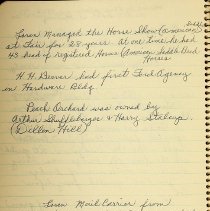 Loren Managed the Horse Show (American
at Fair for 28 years. At one time he had
43 head of registered Horses (American Saddle Bred
Horses
H. H. Beaver had first Ford Agency
in Hardware Bldg.
Peach Orchard was owned by
Arthur & Harry
(Dillon Hill)
Loren Mail Carrier from